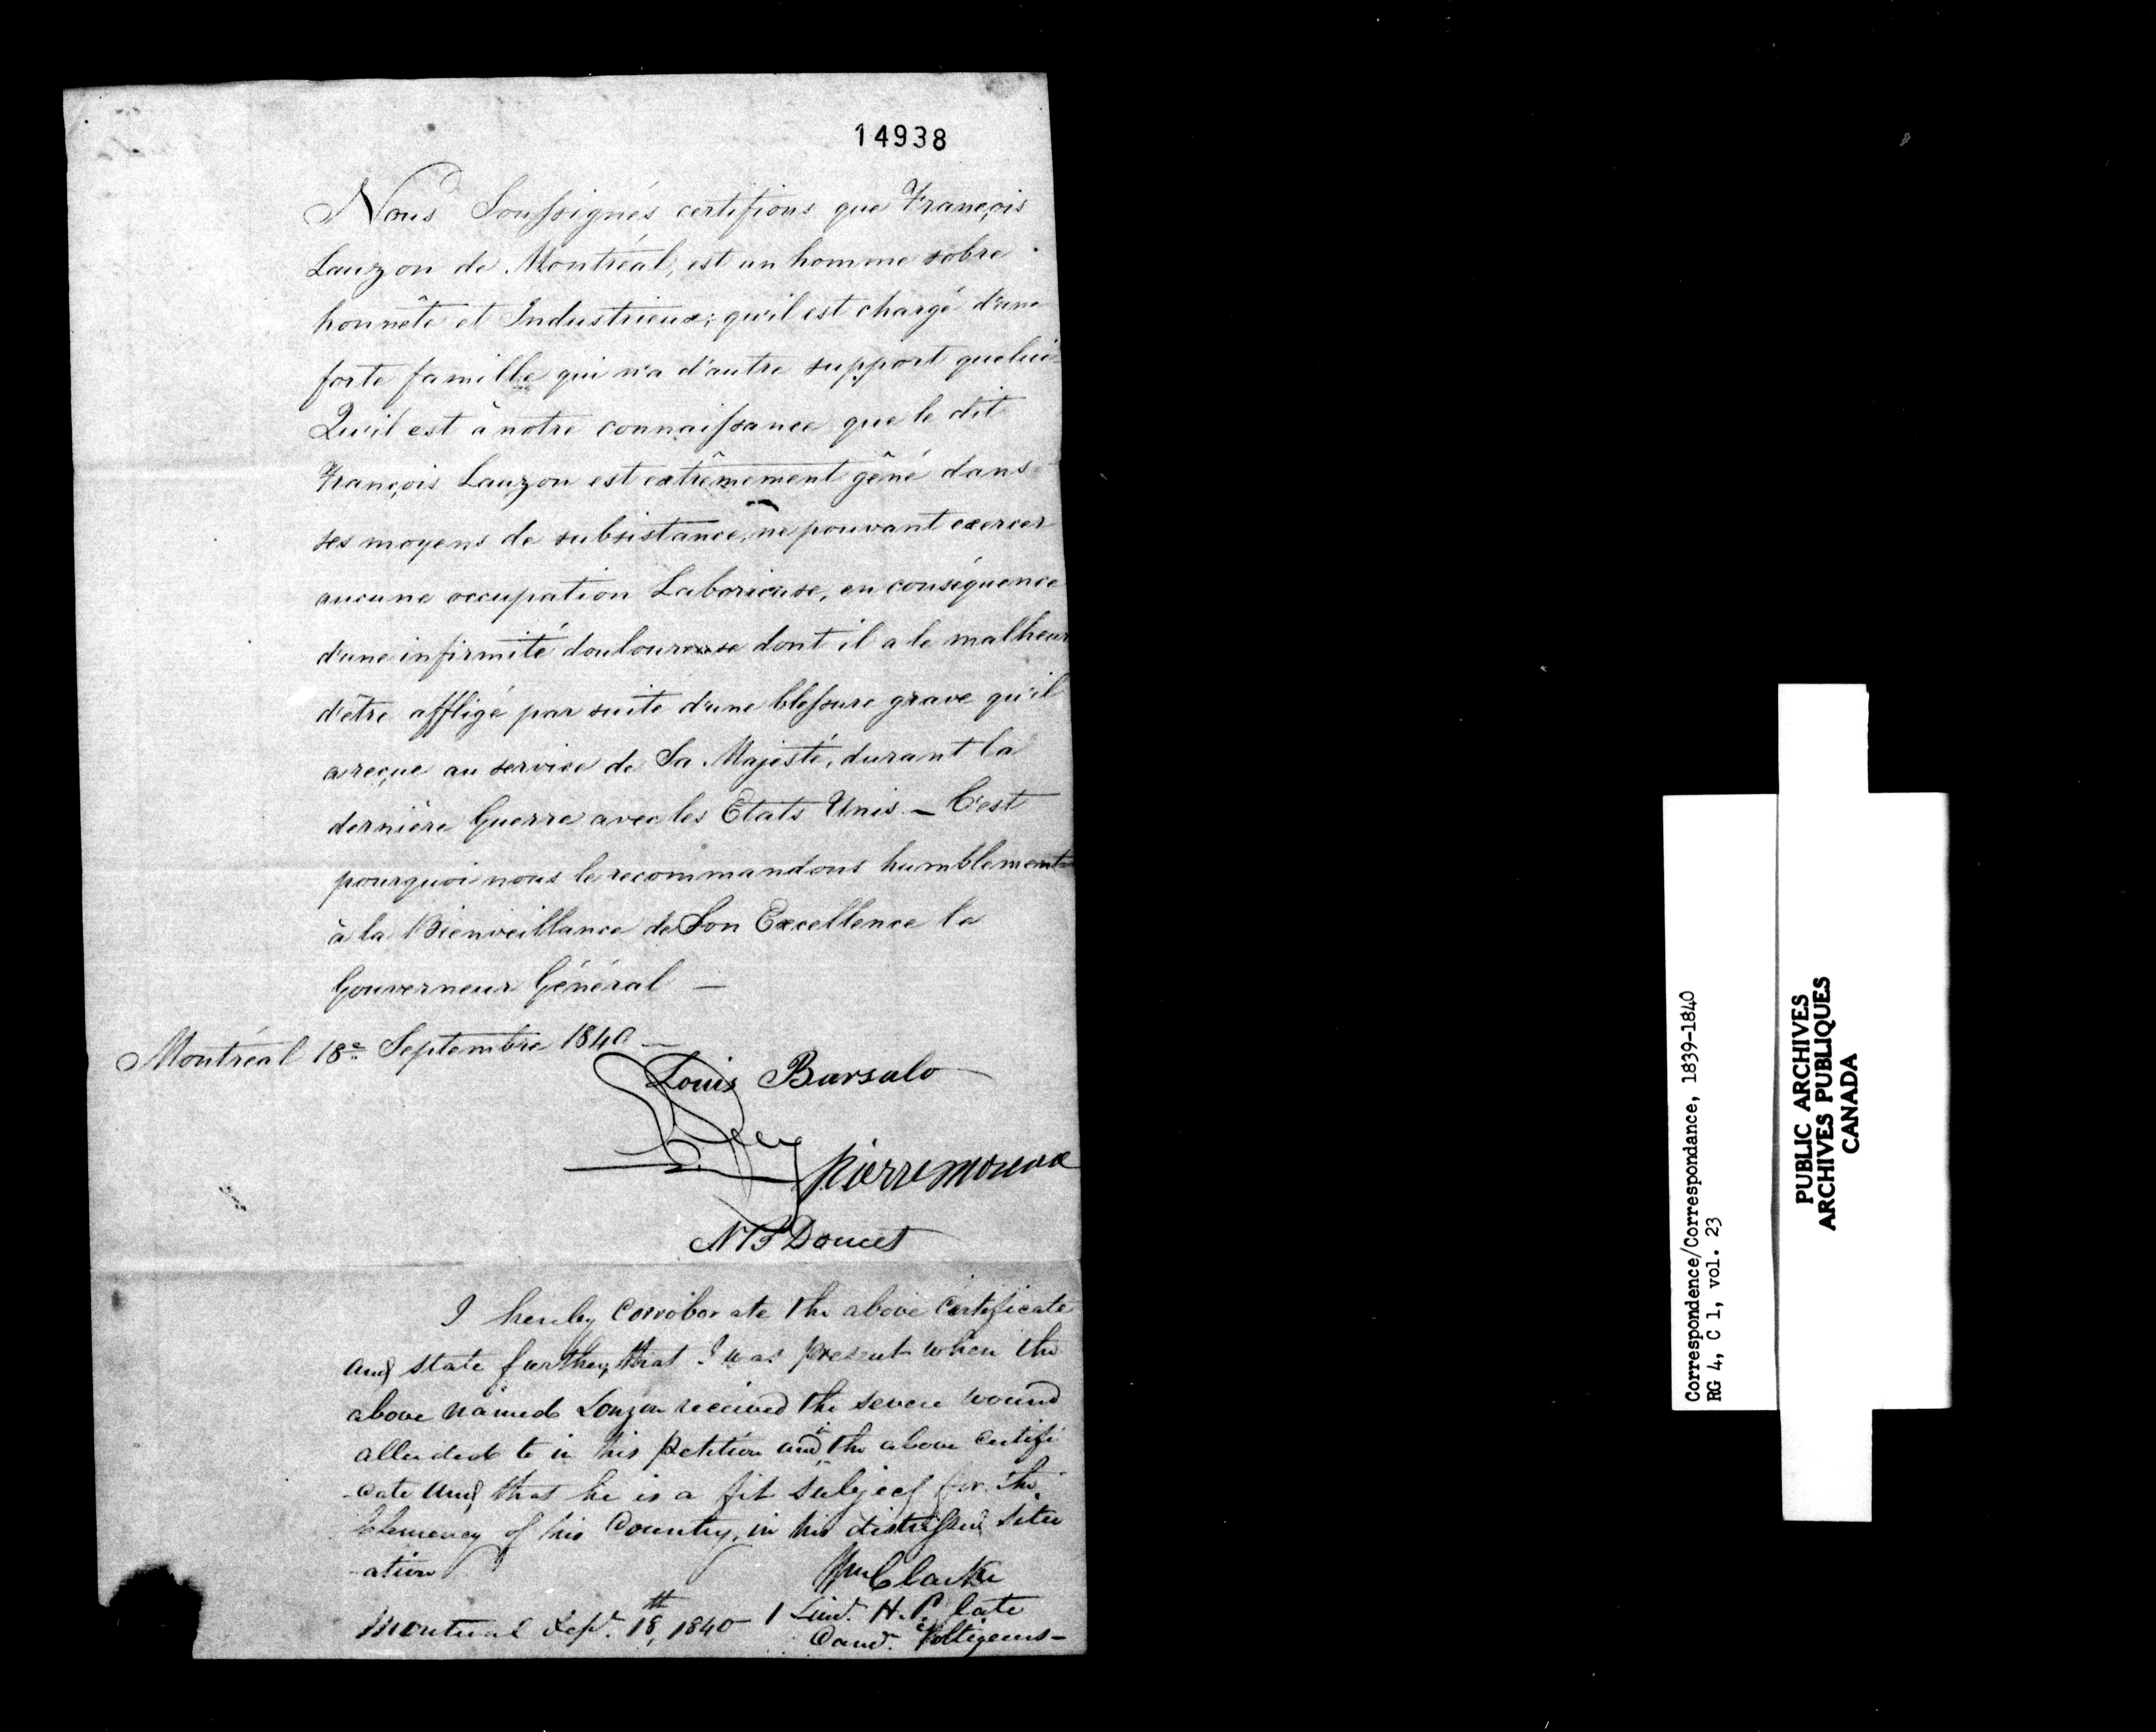 14938
Nous Soussignés certifions que François
Lauzon de Montréal, est un homme sobre
honnête et Industrieux; qu'il est chargé d'une
forte famille qui n'a d'autre support que lui
Qu'il est à notre connaissance que le dit
François Lauzon est extrêmement gêné dans
ses moyens de subsistance, ne pouvant exercer
aucune occupation Laborieuse, en conséquence
d'une infirmité douloureuse dont il a le malheur
d'être affligé par suite d'une blessure grave qu'il
a reçue au service de Sa Majesté, durant la
dernière Guerre avec les Etats Unis — C'est
pourquoi nous le recommandons humblement
à la Bienveillance de Son Excellence le
Gouverneur Général —
Montréal 18e Septembre 1840 —
Louis Barsalo
Pierre Moreau
NB Doucet
I hereby Corroborate the above Certificate
and state further, that I was present when the
above named Lauzon received the severe wound
alluded to in his petition and in the above Certifi
-cate and that he is a fit subject for the
Clemency of his Country, in his distressed situ
-ation
Wm Clarke
Montreal Sept. 18th, 1840 — 1 Lieut. H. P. late
Cand. Voltigeurs —
Correspondence/Correspondance, 1839-1840
RG 4, C 1, vol. 23
PUBLIC ARCHIVES
ARCHIVES PUBLIQUES
CANADA